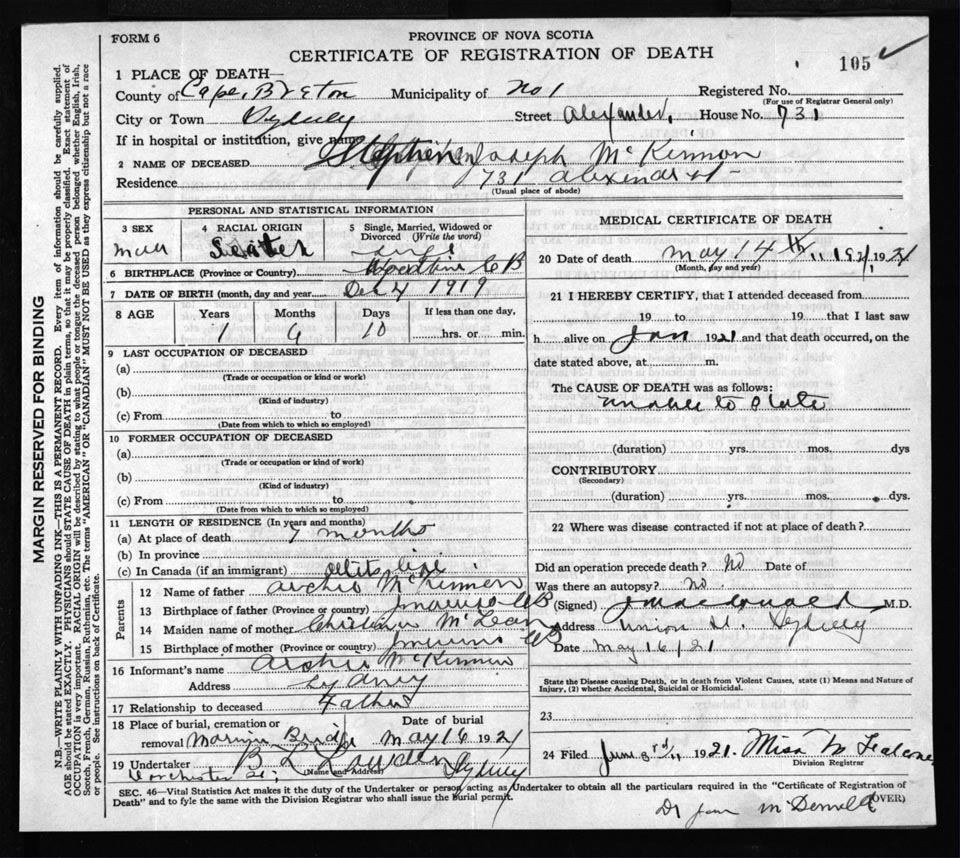 FORM 6
PROVINCE OF NOVA SCOTIA
CERTIFICATE OF REGISTRATION OF DEATH
105
1 PLACE OF DEATH—
County of Cape Breton Municipality of No 1 Registered No.
(For use of Registrar General only)
City or Town Sydney Street Alexander House No. 731
If in hospital or institution, give name
2 NAME OF DECEASED Stephen Joseph McKinnon
Residence 731 Alexander St
(Usual place of abode)
PERSONAL AND STATISTICAL INFORMATION
3 SEX 4 RACIAL ORIGIN 5 Single, Married, Widowed or Divorced (Write the word)
Single
6 BIRTHPLACE (Province or Country) C B
7 DATE OF BIRTH (month, day and year) Dec 4 1919
8 AGE Years Months Days If less than one day,
1 10 hrs. or min.
9 LAST OCCUPATION OF DECEASED
(a)
(Trade or occupation or kind or work)
(b)
(Kind of industry)
(c) From to
(Date from which to which so employed)
10 FORMER OCCUPATION OF DECEASED
(a)
(Trade or occupation or kind of work)
(b)
(Kind of industry)
(c) From to
(Date from which to which so employed)
11 LENGTH OF RESIDENCE (In years and months)
(a) At place of death 7 months
(b) In province
(c) In Canada (if an immigrant) life
Parents
12 Name of father Archie McKinnon
13 Birthplace of father (Province or country) CB
14 Maiden name of mother McLean
15 Birthplace of mother (Province or country) CB
16 Informant's name Archie McKinnon
Address Sydney
17 Relationship to deceased Father
18 Place of burial, cremation or Date of burial
removal Bridge May 16 1921
19 Undertaker Sydney
(Name and Address)
Dorchester St.
MEDICAL CERTIFICATE OF DEATH
20 Date of death May 14th 1921
(Month, day and year)
21 I HEREBY CERTIFY, that I attended deceased from
19 to 19 that I last saw
h alive on Jan 1921 and that death occurred, on the
date stated above, at m.
The CAUSE OF DEATH was as follows:
unable to state
(duration) yrs. mos. dys
CONTRIBUTORY
(Secondary)
(duration) yrs. mos. dys.
22 Where was disease contracted if not at place of death?
Did an operation precede death? No Date of
Was there an autopsy? No
(Signed) J Macdonald M.D.
Address Union St. Sydney
Date May 16/21
State the Disease causing Death, or in death from Violent Causes, state (1) Means and Nature of
Injury, (2) whether Accidental, Suicidal or Homicidal.
23
24 Filed June 3rd 1921. Miss M
Division Registrar
SEC. 46—Vital Statistics Act makes it the duty of the Undertaker or person acting as Undertaker to obtain all the particulars required in the "Certificate of Registration of
Death" and to fyle the same with the Division Registrar who shall issue the burial permit.
(OVER)
MARGIN RESERVED FOR BINDING
N.B.—WRITE PLAINLY WITH UNFADING INK—THIS IS A PERMANENT RECORD. Every item of information should be carefully supplied.
AGE should be stated EXACTLY. PHYSICIANS should STATE CAUSE OF DEATH in plain terms, so that it may be properly classified. Exact statement of
OCCUPATION is very important. RACIAL ORIGIN will be described by stating to what people or tongue the deceased person belonged whether English, Irish,
Scotch, French, German, Russian, Ruthenian, etc. The terms "AMERICAN" OR "CANADIAN" MUST NOT BE USED as they express citizenship but not a race
or people. See instructions on back of Certificate.